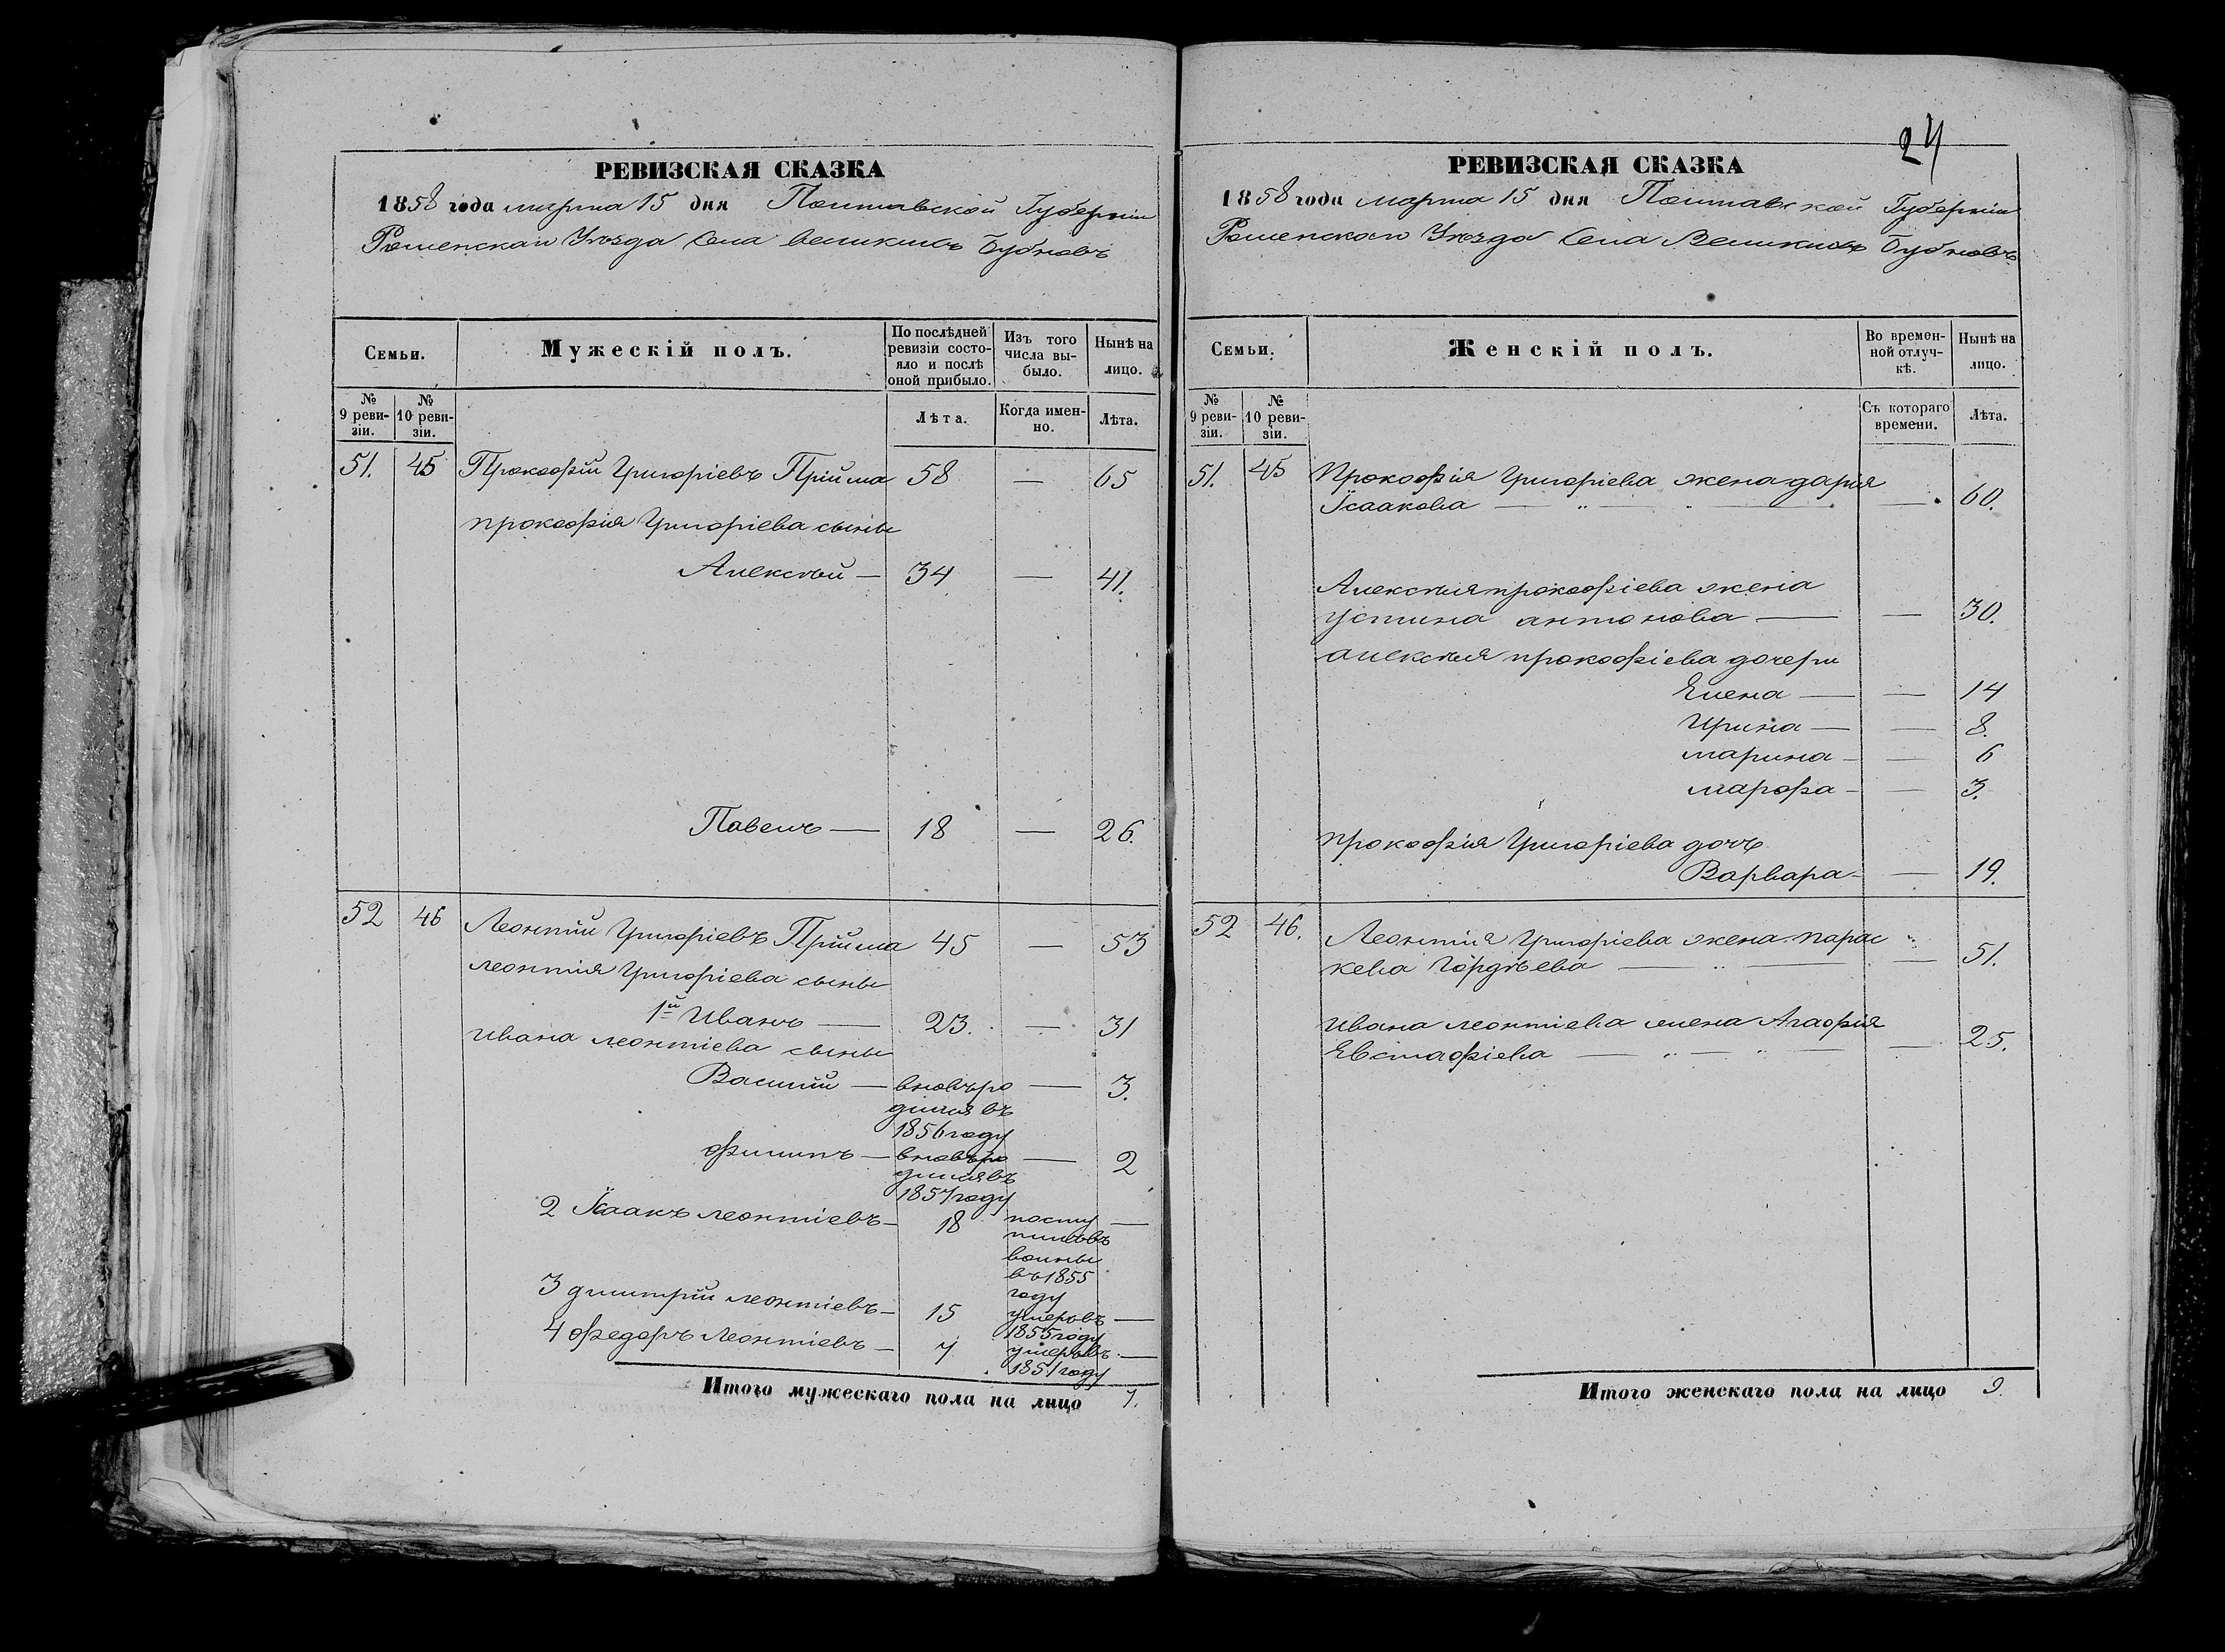 РЕВИЗСКАЯ СКАЗКА
1858 года марта 15 дня Полтавской Губерніи
Роменскаго Уѣзда Села великихъ Бубновъ
Семьи.
Мужескій полъ.
По послѣдней
ревизіи состо-
яло и послѣ
оной прибыло.
Изъ того
числа вы-
было.
Нынѣ на
лицо.
№
9 реви-
зіи.
№
10 реви-
зіи.
Лѣта.
Когда имен-
но.
Лѣта.
51. 45 Прокофій Григоріевъ Прійма 58 — 65
прокофія Григоріева сыны
Алексѣй — 34 — 41.
Павелъ — 18 — 26.
52 46 Леонтій Григоріевъ Прійма 45 — 53
леонтія Григоріева сыны
1й Иванъ — 23. — 31
ивана леонтіева сыны
Василій — вновь ро — 3.
дился въ
1856 году
филипъ — вновь ро — 2
дился въ
1857 году
2 Ісаакъ леонтіевъ — 18 посту —
пилъ въ
воины
въ 1855
году
3 димитрій леонтіевъ — 15 умеръ въ —
1855 году
4 федоръ леонтіевъ — 7 умеръ въ —
1851 году
Итого мужескаго пола на лицо 7.
24
РЕВИЗСКАЯ СКАЗКА
1858 года марта 15 дня Полтавской Губерніи
Роменскаго Уѣзда Села Великихъ Бубновъ
Семьи.
Женскій полъ.
Во времен-
ной отлуч-
кѣ.
Нынѣ на
лицо.
№
9 реви-
зіи.
№
10 реви-
зіи.
Съ котораго
времени.
Лѣта.
51. 45 Прокофія Григоріева жена дарія
Ісаакова — " — — 60.
Алексѣя прокофіева жена
устина антонова — — 30.
алексѣя прокофіева дочери
Елена — — 14
Ирина — — 8.
марина — — 6
марфа — — 3.
прокофія Григоріева дочь
Варвара — — 19.
52 46. Леонтія Григоріева жена парас
кева Гордѣева — " — — 51.
ивана леонтіева жена Агафія
Евстафіева — " — " — — 25.
Итого женскаго пола на лицо 9.